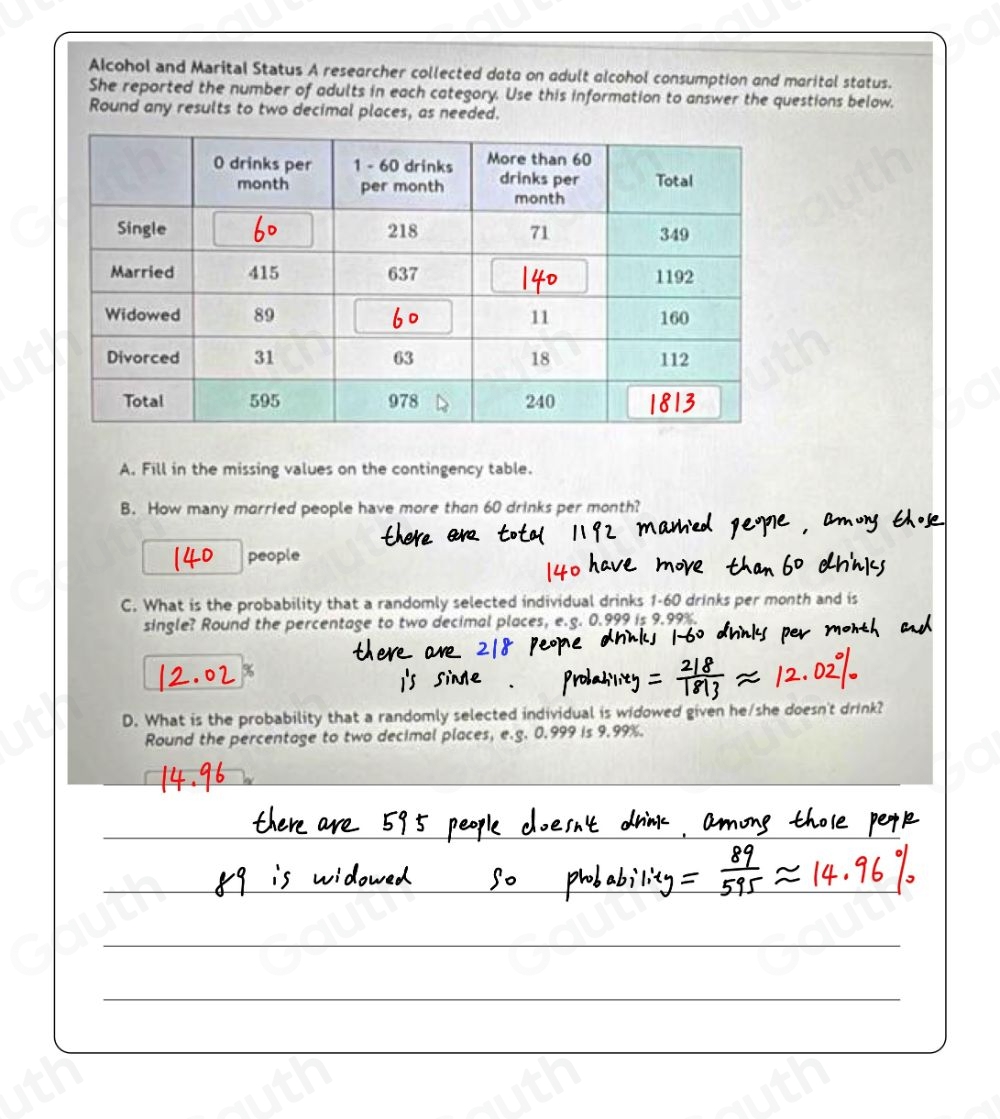 Alcohol and Marital Status A researcher collected data on adult alcohol consumption and marital status.
She reported the number of adults in each category. Use this information to answer the questions below.
Round any results to two decimal places, as needed.
0 drinks per month 1 - 60 drinks per month More than 60 drinks per month Total
Single 60 218 71 349
Married 415 637 140 1192
Widowed 89 60 11 160
Divorced 31 63 18 112
Total 595 978 240 1813
A. Fill in the missing values on the contingency table.
B. How many married people have more than 60 drinks per month?
there are total 1192 married people, among those
140 people
140 have more than 60 drinks
C. What is the probability that a randomly selected individual drinks 1-60 drinks per month and is
single? Round the percentage to two decimal places, e.g. 0.999 is 9.99%.
there are 218 people drinks 1-60 drinks per month and
12.02 %
is sinle . probability = 218/1813 ≈ 12.02%
D. What is the probability that a randomly selected individual is widowed given he/she doesn't drink?
Round the percentage to two decimal places, e.g. 0.999 is 9.99%.
14.96
there are 595 people doesn't drink. among those people
89 is widowed so probability = 89/595 ≈ 14.96%
Gauth